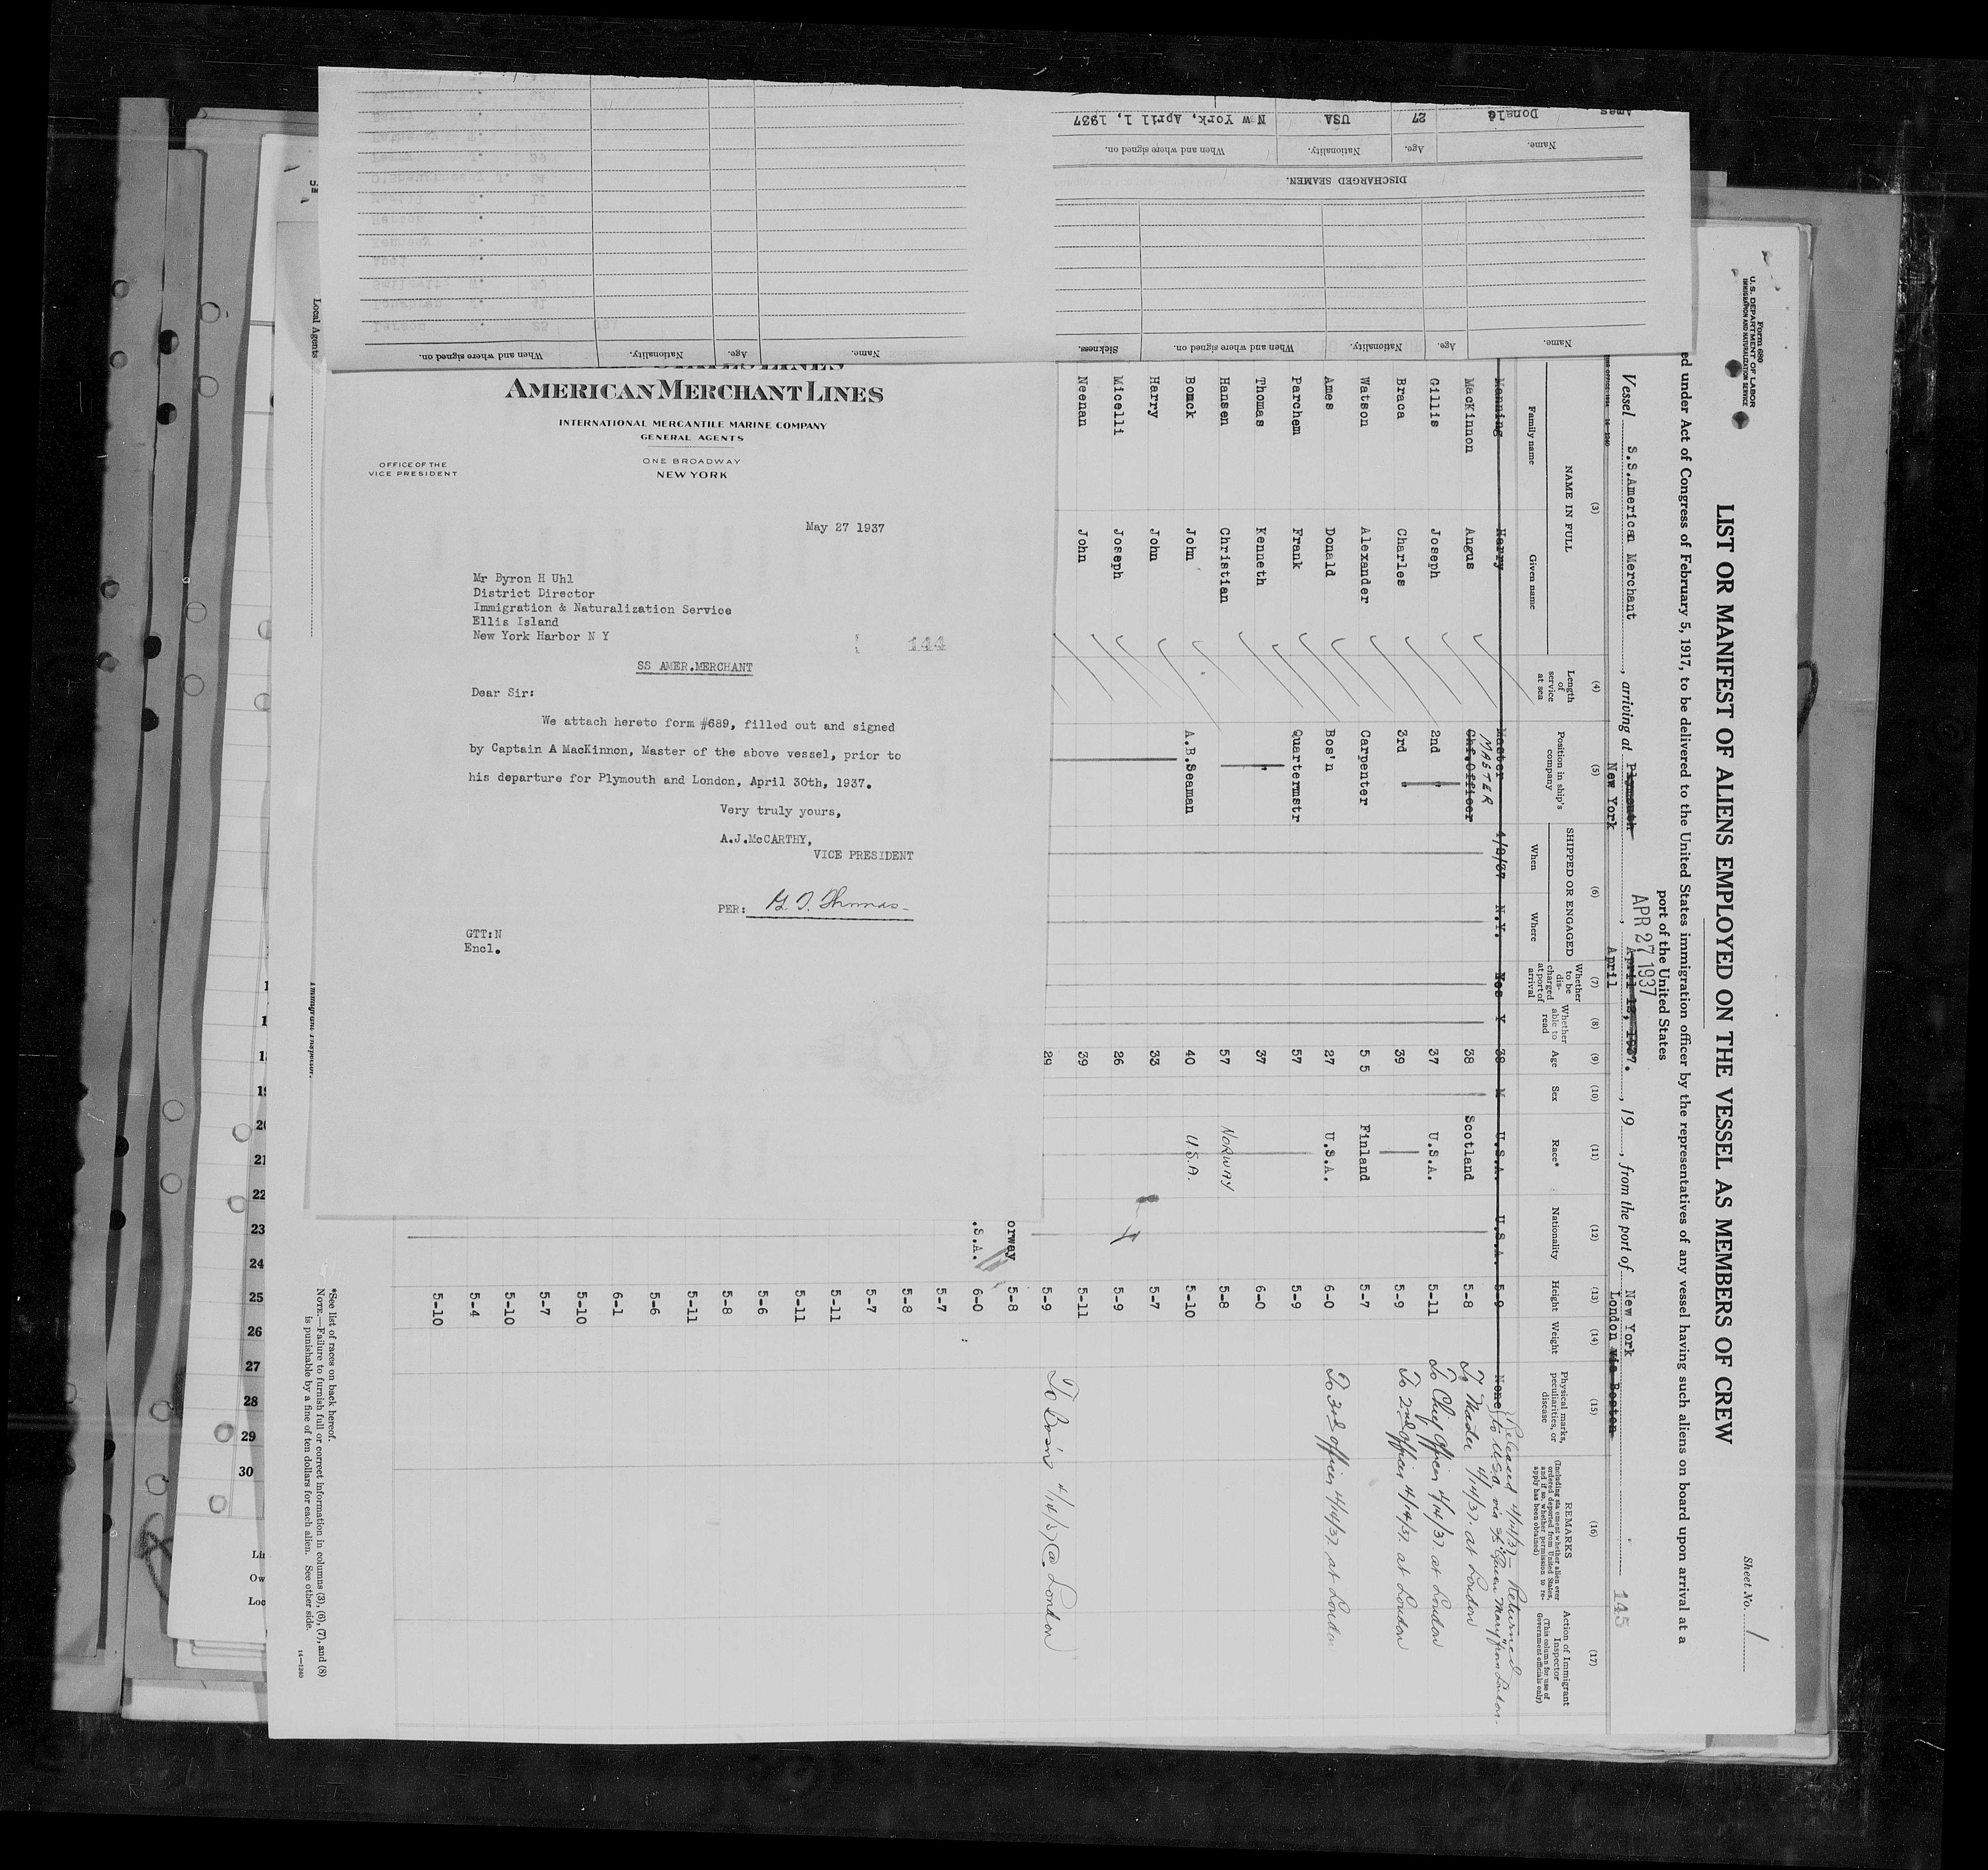 AMERICAN MERCHANT LINES
INTERNATIONAL MERCANTILE MARINE COMPANY
GENERAL AGENTS
ONE BROADWAY
NEW YORK
OFFICE OF THE
VICE PRESIDENT
May 27 1937
Mr Byron H Uhl
District Director
Immigration & Naturalization Service
Ellis Island
New York Harbor N Y
144
SS AMER.MERCHANT
Dear Sir:
We attach hereto form #689, filled out and signed
by Captain A MacKinnon, Master of the above vessel, prior to
his departure for Plymouth and London, April 30th, 1937.
Very truly yours,
A.J.McCARTHY,
VICE PRESIDENT
PER: G. T. Thomas
GTT:N
Encl.
Name. Age. Nationality. When and where signed on.
Name. Age. Nationality. When and where signed on. Sickness.
DISCHARGED SEAMEN.
Name. Age. Nationality. When and where signed on.
Ames Donald 27 USA N w York, April 1, 1937
Local Agents
Immigrant Inspector.
Form 680
U.S. DEPARTMENT OF LABOR
IMMIGRATION AND NATURALIZATION SERVICE
Sheet No. 1
LIST OR MANIFEST OF ALIENS EMPLOYED ON THE VESSEL AS MEMBERS OF CREW
ed under Act of Congress of February 5, 1917, to be delivered to the United States immigration officer by the representatives of any vessel having such aliens on board upon arrival at a
port of the United States
APR 27 1937
Vessel S.S.American Merchant, arriving at Plymouth April 13, 1937., 19, from the port of New York
New York April London via Boston
145
(3) (4) (5) (6) (7) (8) (9) (10) (11) (12) (13) (14) (15) (16) (17)
NAME IN FULL
Family name Given name
Length of service at sea
Position in ship's company
SHIPPED OR ENGAGED
When Where
Whether to be discharged at port of arrival
Whether able to read
Age
Sex
Race*
Nationality
Height
Weight
Physical marks, peculiarities, or disease
REMARKS
(Including statement whether alien ever ordered deported from United States, and if so, whether permission to reapply has been obtained)
Action of Immigrant Inspector
(This column for use of Government officials only)
Manning Harry Master 4/2/37 N.Y. Yes Y 38 M U.S.A. U.S.A. 5-9 None
Released 4/14/37 – Returned
to USA via SS Queen Mary from London.
MacKinnon Angus Chf.Officer MASTER 38 Scotland 5-8 To Master 4/14/37. at London
Gillis Joseph 2nd " 37 U.S.A. 5-11 To Chief Officer 4/14/37. at London
Braca Charles 3rd " 39 5-9 To 2nd Officer 4/14/37. at London
Watson Alexander Carpenter 5 5 Finland 5-7
Ames Donald Bos'n 27 U.S.A. 6-0 To 3rd officer 4/14/37. at London
Parchem Frank Quartermstr 57 5-9
Thomas Kenneth " 37 6-0
Hansen Christian 57 NORWAY 5-8
Bomck John A.B.Seaman 40 U.S.A. 5-10
Harry John 33 5-7
Micelli Joseph 26 5-9
Neenan John 39 5-11
29 5-9 To Bos'n 4/14/37 @ London
orway 5-8
.S.A. 6-0
5-7
5-8
5-7
5-11
5-11
5-6
5-8
5-11
5-6
6-1
5-10
5-7
5-10
5-4
5-10
20
21
22
23
24
25
26
27
28
29
30
Lin
Ow
Loc
*See list of races on back hereof.
NOTE.—Failure to furnish full or correct information in columns (3), (6), (7), and (8)
is punishable by a fine of ten dollars for each alien. See other side.
14—1240